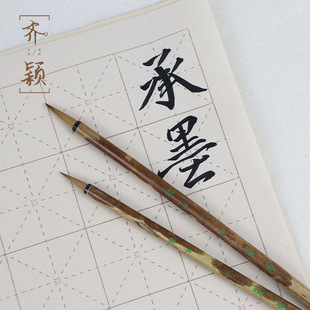 齐颖
承墨